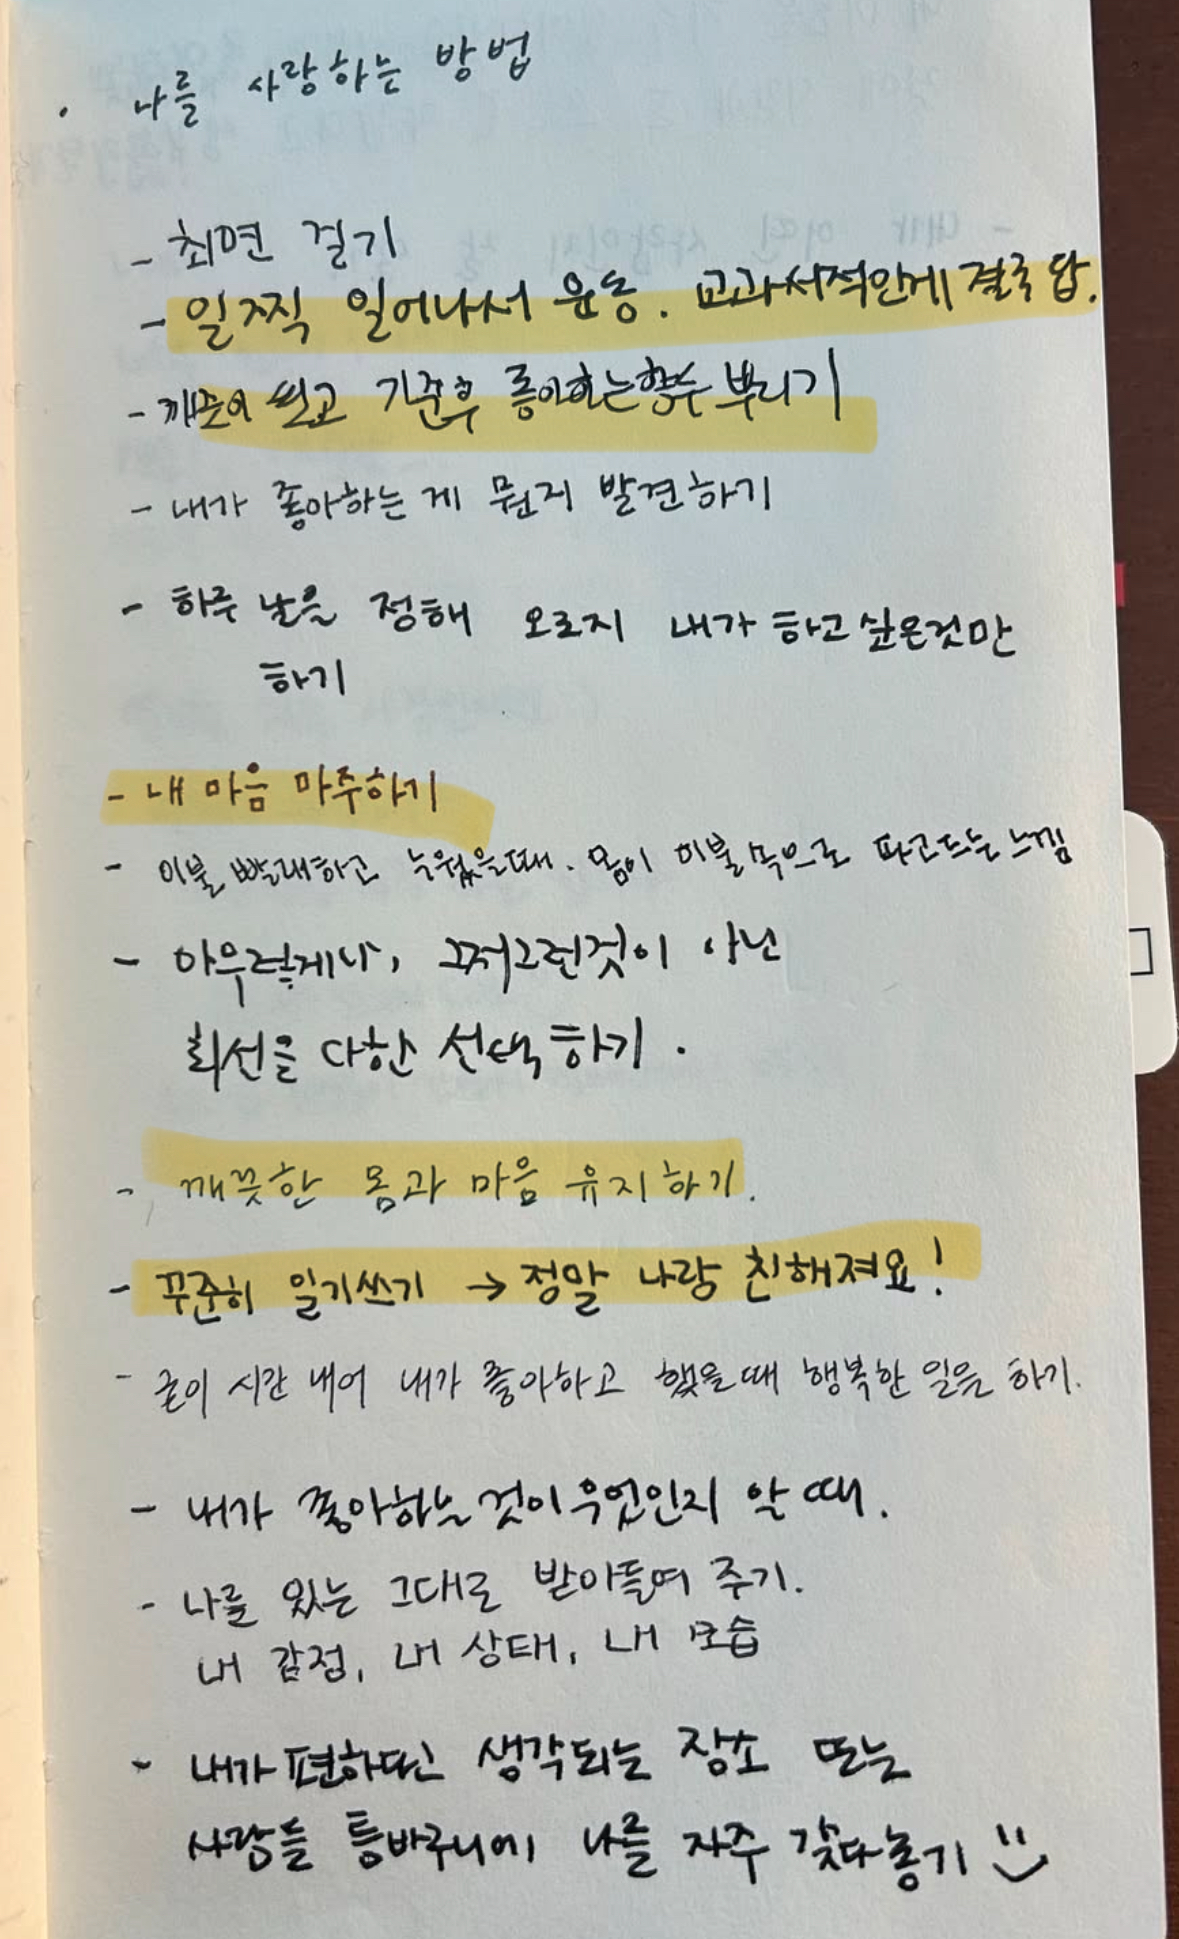 · 나를 사랑하는 방법
- 최면 걸기
- 일찍 일어나서 운동. 교과서적인게 결국 답.
- 깨끗이 씻고 기준후 좋아하는향수 뿌리기
- 내가 좋아하는 게 뭔지 발견하기
- 하루 날을 정해 오로지 내가 하고싶은것만
하기
- 내 마음 마주하기
- 이불 빨래하고 누웠을때. 몸이 이불 속으로 파고드는 느낌
- 아무렇게나, 그저그런것이 아닌
최선을 다한 선택하기.
- 깨끗한 몸과 마음 유지하기.
- 꾸준히 일기쓰기 → 정말 나랑 친해져요!
- 굳이 시간 내어 내가 좋아하고 했을때 행복한 일을 하기.
- 내가 좋아하는 것이 무엇인지 알 때.
- 나를 있는 그대로 받아들여 주기.
내 감정, 내 상태, 내 모습
- 내가 편하다고 생각되는 장소 또는
사람들 틈바구니에 나를 자주 갖다놓기